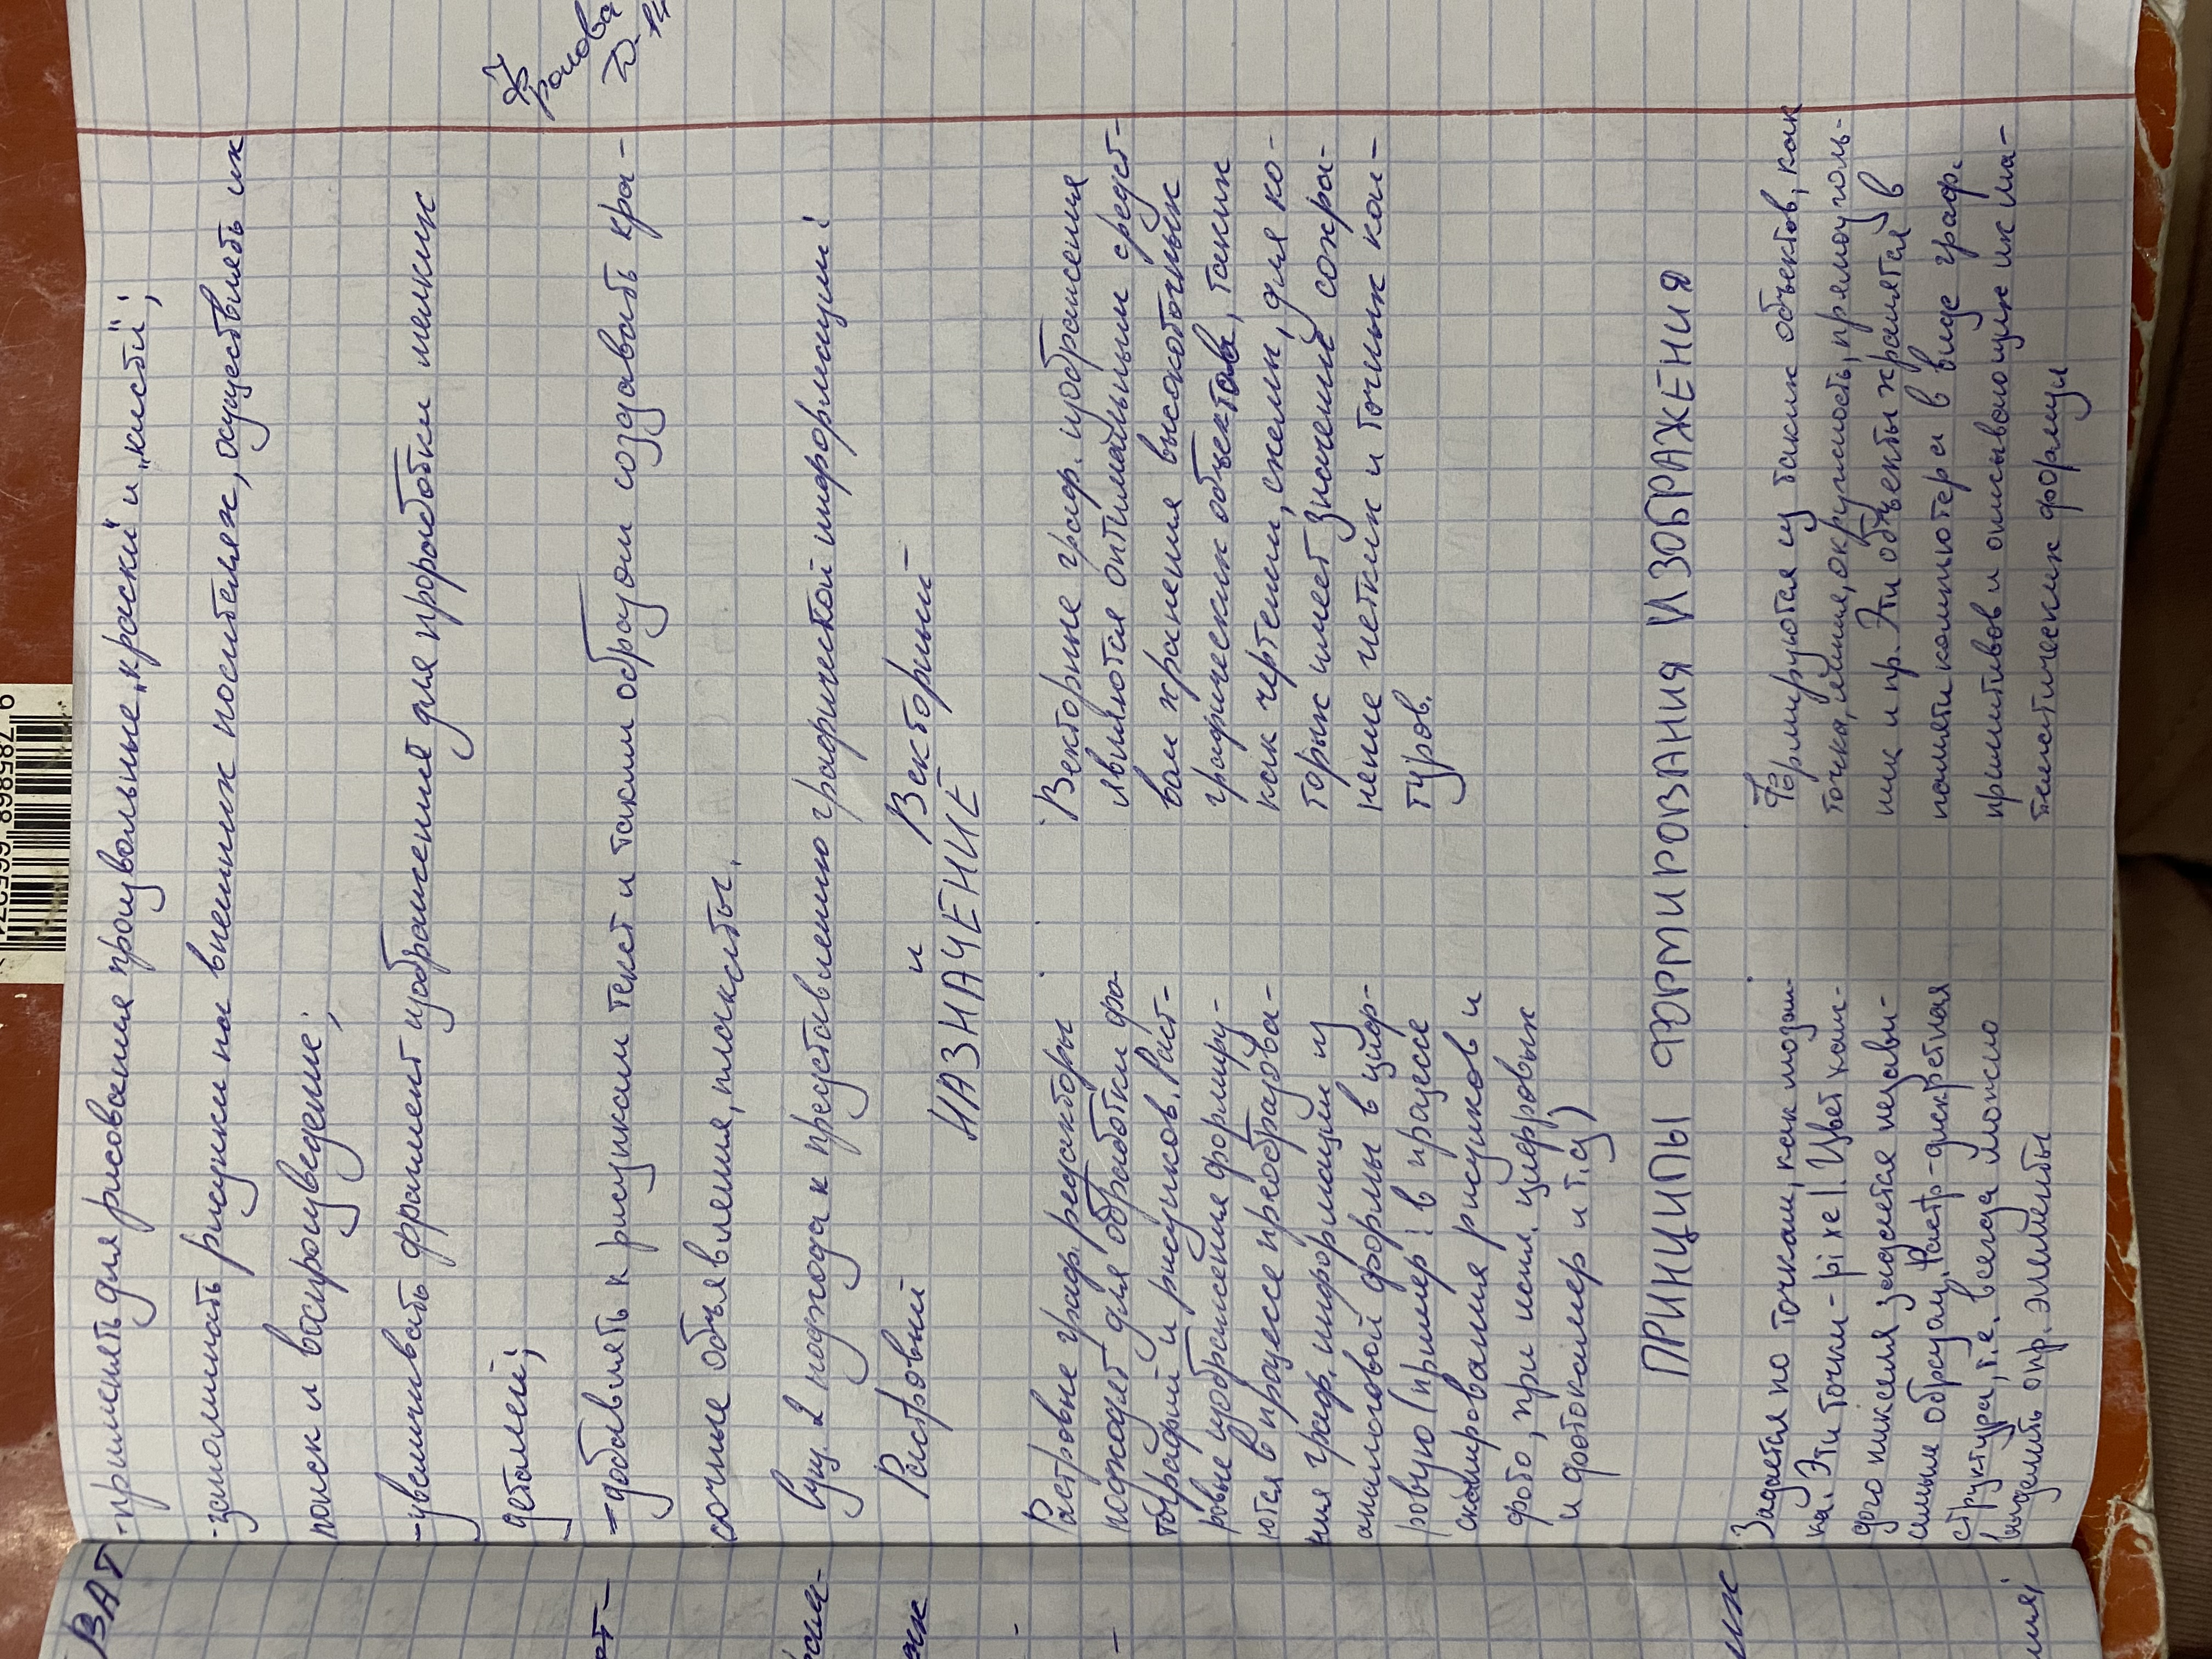 -применять для рисования произвольные „краски" и „кисти";
-запоминать рисунки на внешних носителях, осуществлять их
поиск и воспроизведение;
-увеличивать фрагмент изображения для проработки мелких
деталей;
-добавлять к рисункам текст и таким образом создавать кра-
сочные объявления, плакаты.
Сущ. 2 подхода к представлению графической информации:
Растровый и Векторный
НАЗНАЧЕНИЕ
Растровые граф. редакторы
подходят для обработки фо-
тографий и рисунков. Раст-
ровые изображения формиру-
ются в процессе преобразова-
ния граф. информации из
аналоговой формы в циф-
ровую (пример: в процессе
сканирования рисунков и
фото, при исп. цифровых
и фотокамер и т.д)
Векторные граф. изображения
являются оптимальным средст-
вом хранения высокоточных
графических объектов, таких
как чертежи, схемы, для ко-
торых имеет значений сохра-
нение четких и точных кон-
туров.
ПРИНЦИПЫ ФОРМИРОВАНИЯ ИЗОБРАЖЕНИЯ
Задаётся по точкам, как мозаи-
ка. Эти точки - pixel. Цвет каж-
дого пикселя задаётся независи-
симым образом. Растр-дискретная
структура, т.е. всегда можно
выделить опр. элементы
Формируются из таких объектов, как
точка, линия, окружность, прямоуголь-
ник и пр. Эти объекты хранятся в
памяти компьютера в виде граф.
примитивов и описывающих их ма-
тематических формул
ВАТ
9 785868 66